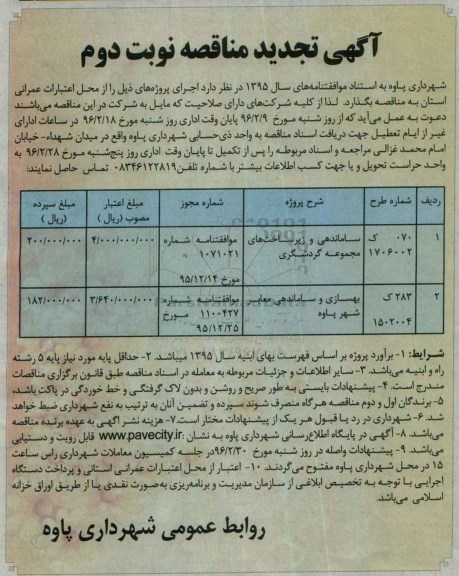 آگهی تجدید مناقصه نوبت دوم
شهرداری پاوه به استناد موافقتنامه‌های سال ۱۳۹۵ در نظر دارد اجرای پروژه‌های ذیل را از محل اعتبارات عمرانی
استان به مناقصه بگذارد. لذا از کلیه شرکت‌های دارای صلاحیت که مایل به شرکت در این مناقصه می‌باشند
دعوت به عمل می‌آید که از روز شنبه مورخ ۹۶/۲/۹ پایان وقت اداری روز شنبه مورخ ۹۶/۲/۱۸ در ساعات اداری
غیر از ایام تعطیل جهت دریافت اسناد مناقصه به واحد ذی‌حسابی شهرداری پاوه واقع در میدان شهداء- خیابان
امام محمد غزالی مراجعه و اسناد مربوطه را پس از تکمیل تا پایان وقت اداری روز پنج‌شنبه مورخ ۹۶/۲/۲۸ به
واحد حراست تحویل و یا جهت کسب اطلاعات بیشتر با شماره تلفن ۰۸۳۴۶۱۲۲۸۱۹ تماس حاصل نمایند:
ردیف شماره طرح شرح پروژه شماره مجوز مبلغ اعتبار مصوب (ریال) مبلغ سپرده (ریال)
۱ ۰۷۰ ک ۱۷۰۶۰۰۲ ساماندهی و زیرساخت‌های مجموعه گردشگری موافقتنامه شماره ۱۰۷۱۰۲۱ مورخ ۹۵/۱۲/۱۴ ۴/۰۰۰/۰۰۰/۰۰۰ ۲۰۰/۰۰۰/۰۰۰
۲ ۲۸۳ ک ۱۵۰۲۰۰۴ بهسازی و ساماندهی معابر شهر پاوه موافقتنامه شماره ۱۱۰۰۴۲۷ مورخ ۹۵/۱۲/۲۵ ۳/۶۴۰/۰۰۰/۰۰۰ ۱۸۲/۰۰۰/۰۰۰
شرایط: ۱- برآورد پروژه بر اساس فهرست بهای ابنیه سال ۱۳۹۵ میباشد. ۲- حداقل پایه مورد نیاز پایه ۵ رشته
راه و ابنیه می‌باشد. ۳- سایر اطلاعات و جزئیات مربوطه به معامله در اسناد مناقصه طبق قانون برگزاری مناقصات
مندرج است. ۴- پیشنهادات بایستی به طور صریح و روشن و بدون لاک گرفتگی و خط خوردگی در پاکت باشد،
۵- برندگان اول و دوم مناقصه هرگاه منصرف شوند سپرده و تضمین آنان به ترتیب به نفع شهرداری ضبط خواهد
شد. ۶- شهرداری در رد یا قبول هر یک از پیشنهادات مختار است. ۷- هزینه نشر آگهی به عهده برنده مناقصه
می‌باشد. ۸- آگهی در پایگاه اطلاع‌رسانی شهرداری پاوه به نشان www.pavecity.ir قابل رویت و دستیابی
می‌باشد. ۹- پیشنهادات واصله در روز شنبه مورخ ۹۶/۲/۳۰ در جلسه کمیسیون معاملات شهرداری راس ساعت
۱۵ در محل شهرداری پاوه مفتوح می‌گردند. ۱۰- اعتبار از محل اعتبارات عمرانی استانی و پرداخت دستگاه
اجرایی با توجه به تخصیص ابلاغی از سازمان مدیریت و برنامه‌ریزی به صورت نقدی یا از طریق اوراق خزانه
اسلامی می‌باشد.
روابط عمومی شهرداری پاوه